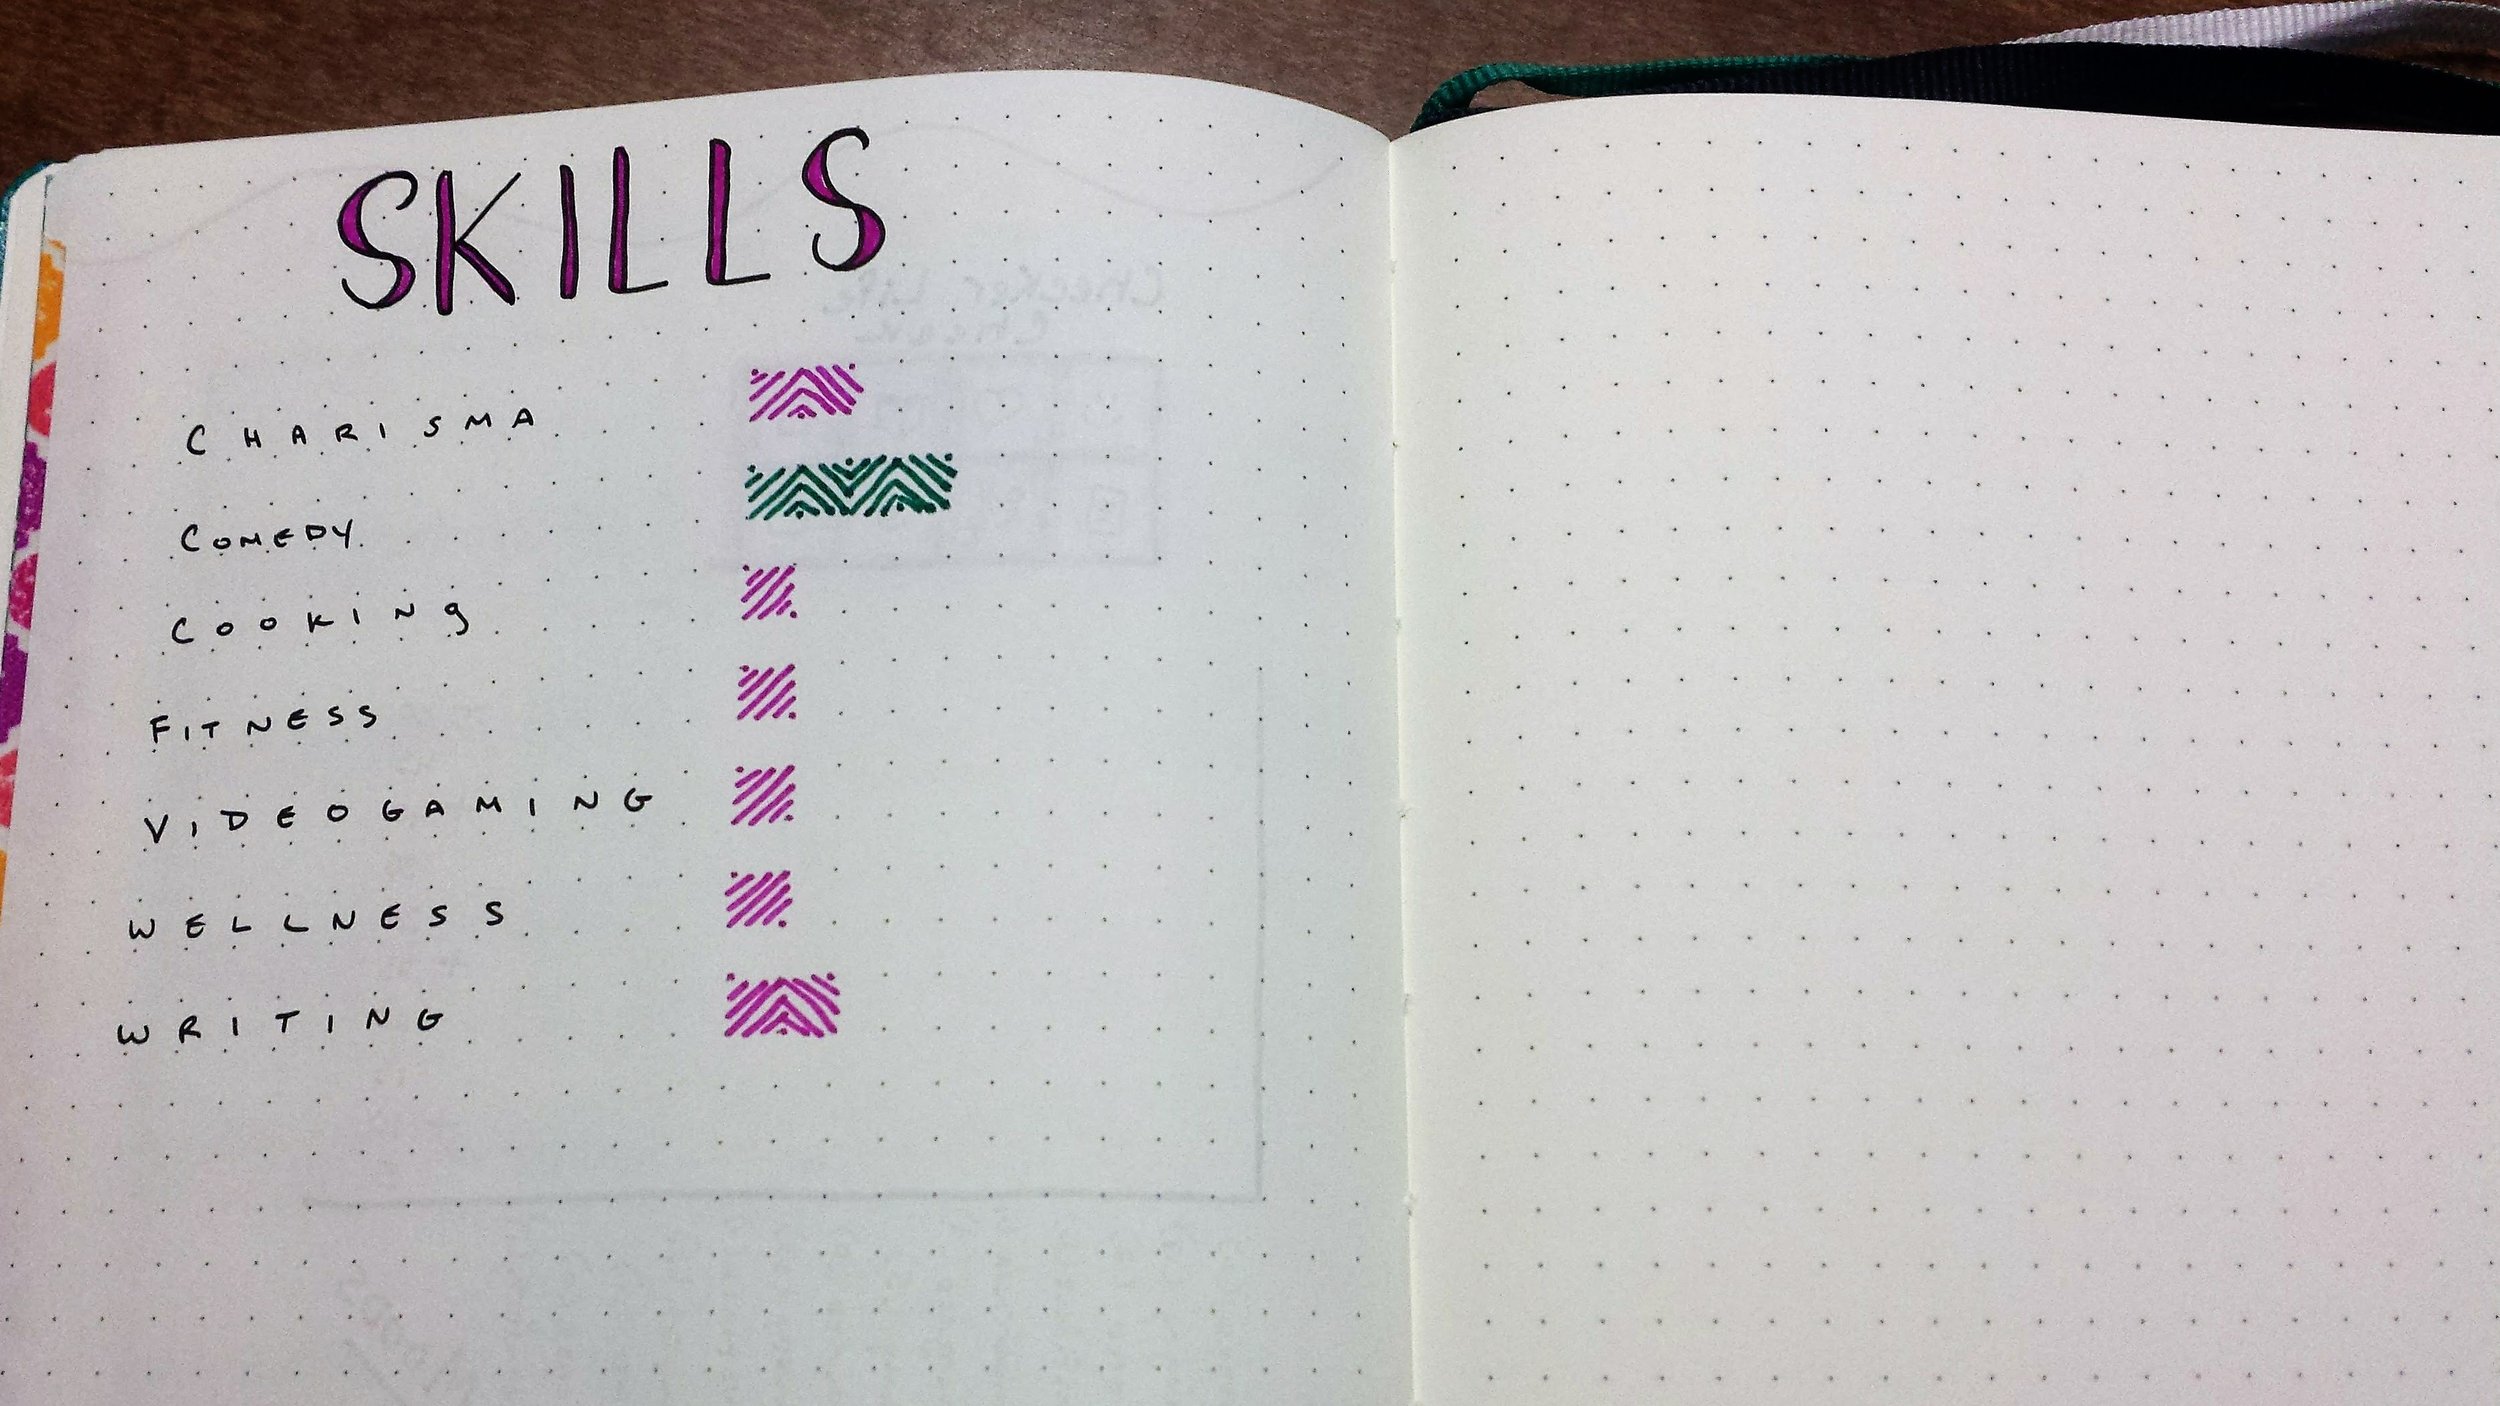 SKILLS
CHARISMA
COMEDY
COOKINg
FITNESS
VIDEOGAMING
WELLNESS
WRITING